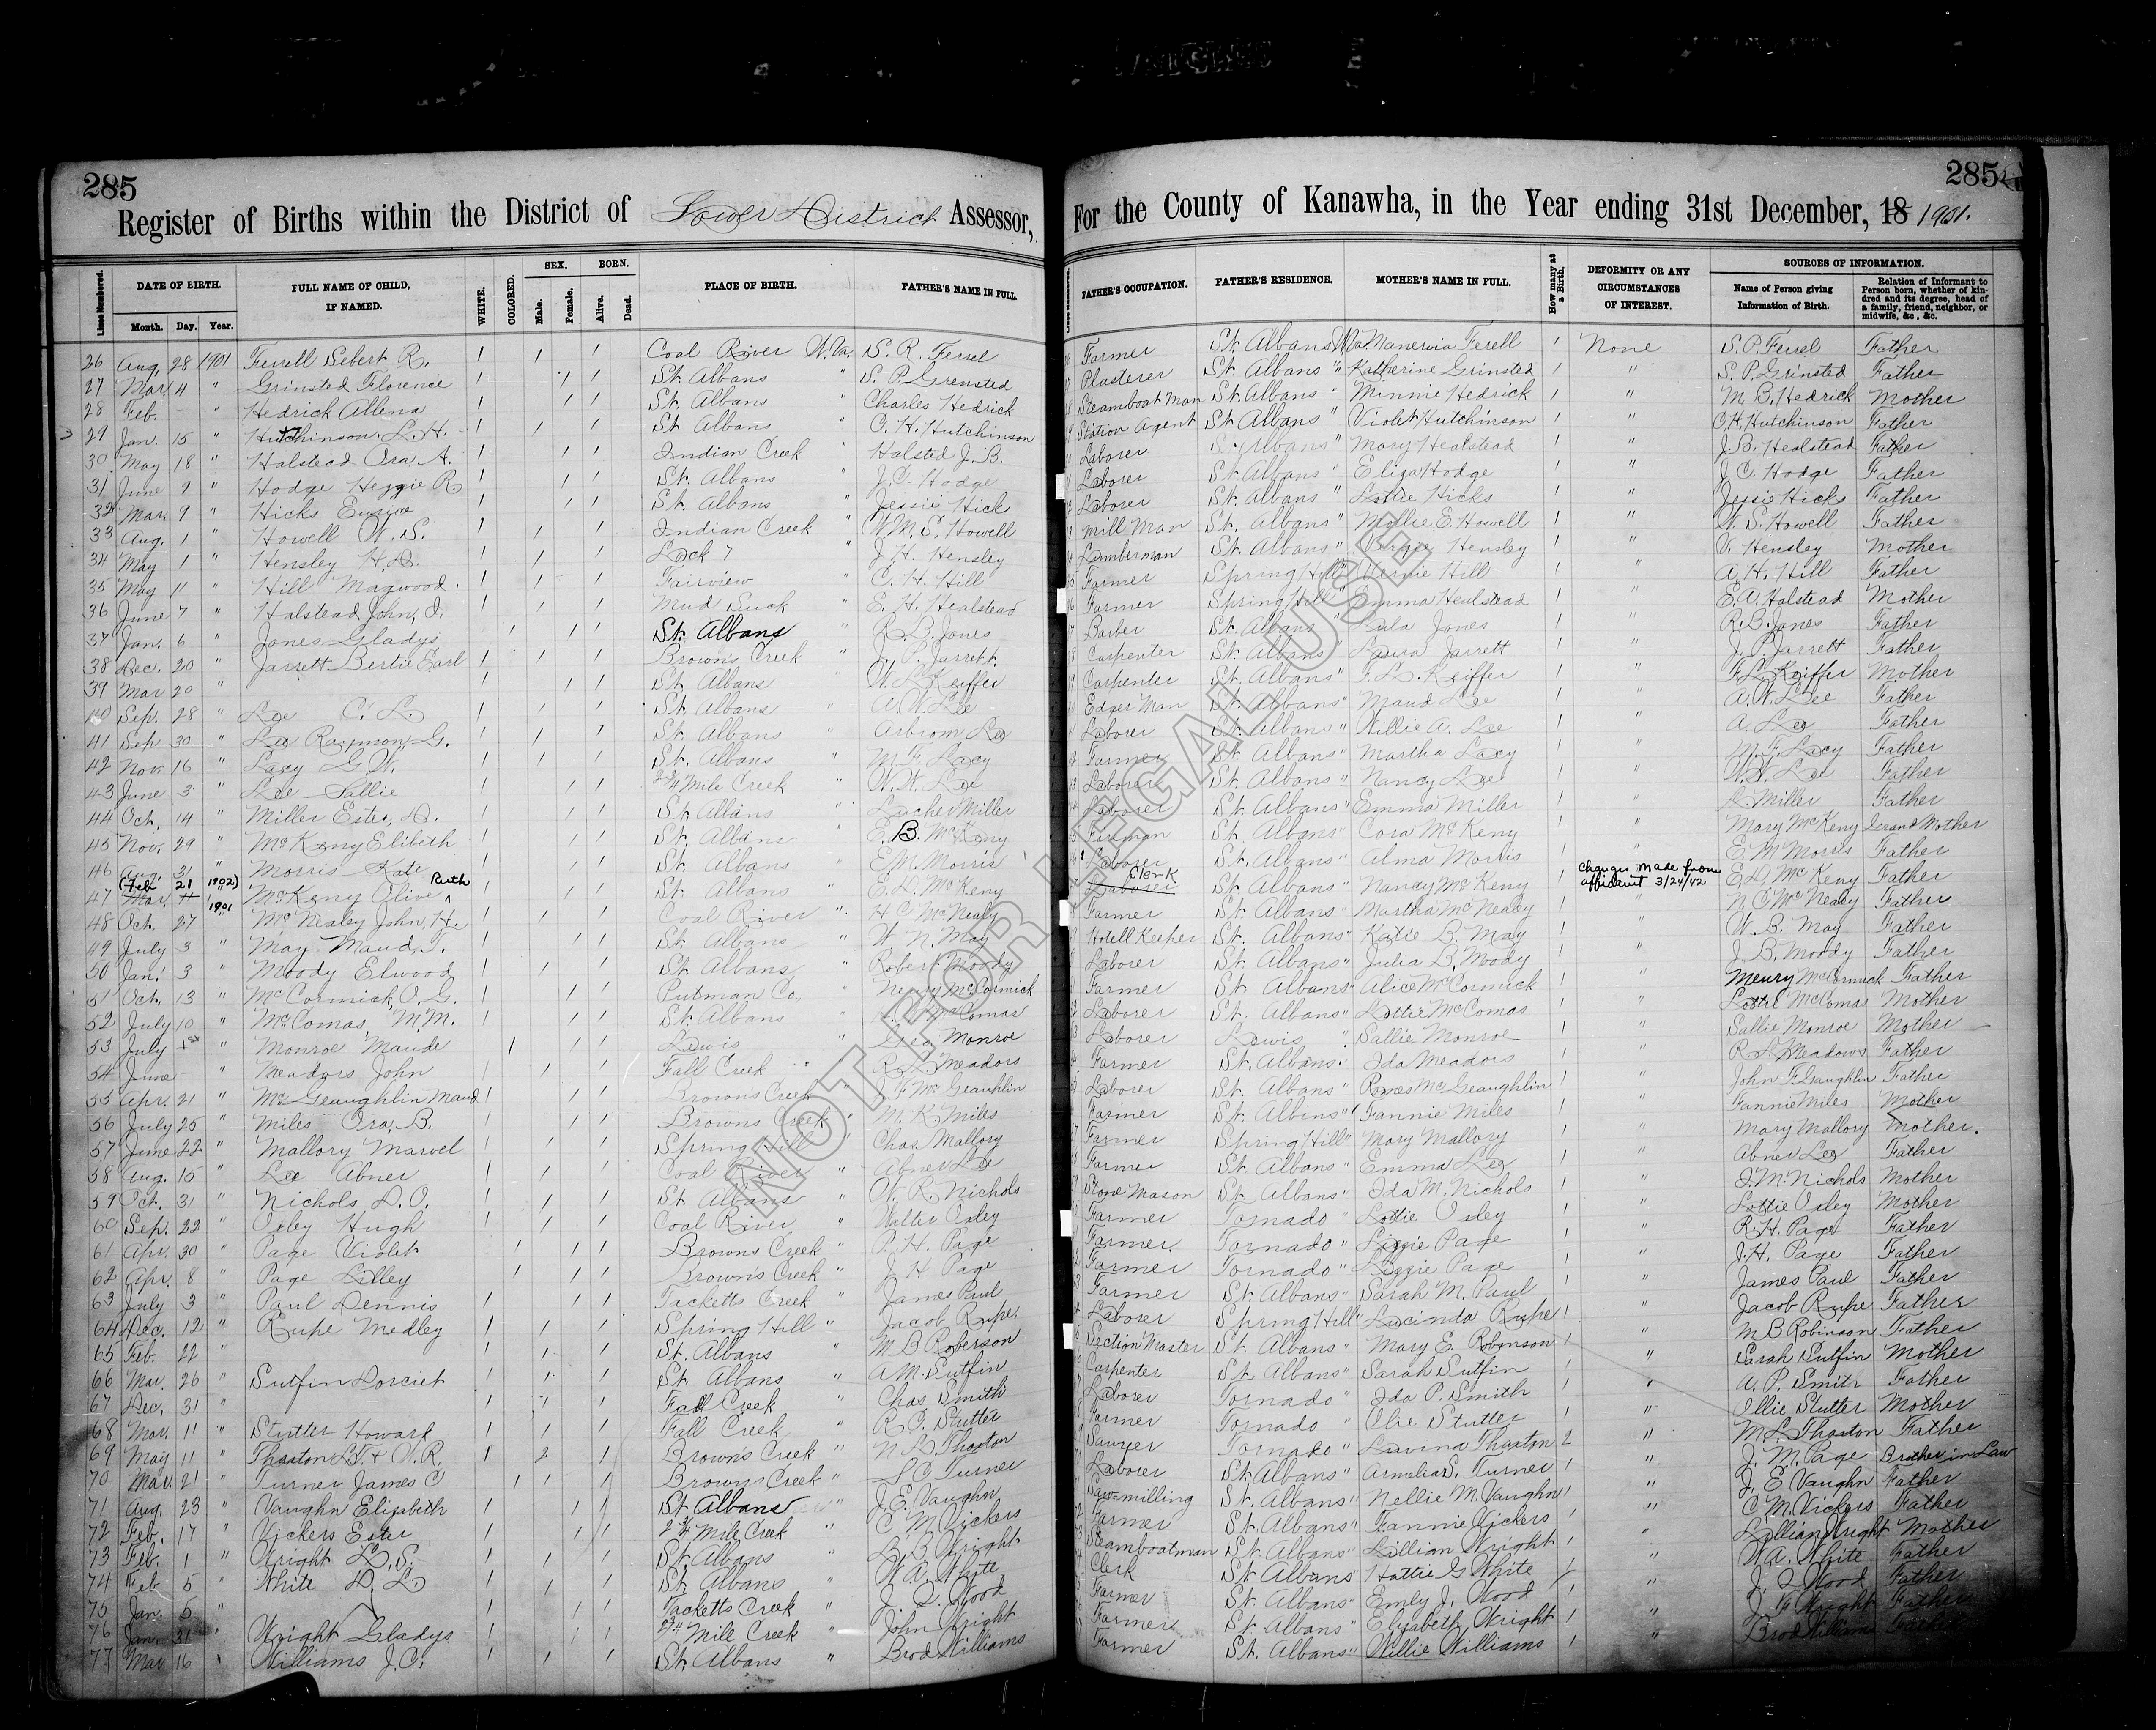 285
285
Register of Births within the District of Lower District Assessor, For the County of Kanawha, in the Year ending 31st December, 18 1901.
Lines Numbered. DATE OF BIRTH. Month. Day. Year. FULL NAME OF CHILD, IF NAMED. WHITE. COLORED. SEX. Male. Female. BORN. Alive. Dead. PLACE OF BIRTH. FATHER'S NAME IN FULL. FATHER'S OCCUPATION. FATHER'S RESIDENCE. MOTHER'S NAME IN FULL. How many at a Birth. DEFORMITY OR ANY CIRCUMSTANCES OF INTEREST. SOURCES OF INFORMATION. Name of Person giving Information of Birth. Relation of Informant to Person born, whether of kindred and its degree, head of a family, friend, neighbor, or midwife, &c., &c.
26 Aug. 28 1901 Ferrell Sebert R. 1 1 1 Coal River W.Va. S. R. Ferrel Farmer St. Albans W.Va. Manervia Ferell 1 None S. P. Ferrel Father
27 Mar. 4 " Grinsted Florence 1 1 1 St. Albans " S. P. Grensted Plasterer St. Albans " Katherine Grinsted 1 " S. P. Grinsted Father
28 Feb. - " Hedrick Allena 1 1 1 St. Albans " Charles Hedrick Steamboat Man St. Albans " Minnie Hedrick 1 " M. B. Hedrick Mother
29 Jan. 15 " Hutchinson, L. H. 1 1 1 St. Albans " C. H. Hutchinson Station Agent St. Albans " Violet Hutchinson 1 " C. H. Hutchinson Father
30 May 18 " Halstead Ora, A. 1 1 1 Indian Creek " Halsted J. B. Laborer St. Albans " Mary Healstead 1 " J. B. Healstead Father
31 June 9 " Hodge Heggie R. 1 1 1 St. Albans " J. C. Hodge Laborer St. Albans " Eliza Hodge 1 " J. C. Hodge Father
32 Mar. 9 " Hicks 1 1 1 St. Albans " Jessie Hick Laborer St. Albans " Lottie Hicks 1 " Jessie Hicks Father
33 Aug. 1 " Howell W. S. 1 1 1 Indian Creek " Wm. S. Howell Mill Man St. Albans " Mollie E. Howell 1 " W. S. Howell Father
34 May 1 " Hensley H. D. 1 1 1 Lock 7 " J. H. Hensley Lumberman St. Albans " Virgie Hensley 1 " V. Hensley Mother
35 May 11 " Hill Magwood. 1 1 1 Fairview " C. H. Hill Farmer Spring Hill " Hill 1 " A. H. Hill Father
36 June 7 " Halstead John, J. 1 1 1 Mud Suck " E. H. Healstead Farmer Spring Hill " Emma Healstead 1 " E. A. Halstead Mother
37 Jan. 6 " Jones Gladys 1 1 1 St. Albans " R. B. Jones Barber St. Albans " Lula Jones 1 " R. B. Jones Father
38 Dec. 20 " Jarrett Bertie Earl 1 1 1 Browns Creek " J. P. Jarrett Carpenter St. Albans Laura Jarrett 1 " J. P. Jarrett Father
39 Mar 20 " 1 1 1 St. Albans " W. L. Keiffer Carpenter St. Albans " F. L. Keiffer 1 " F. L. Keiffer Mother
40 Sep. 28 " Lee C. L. 1 1 1 St. Albans " A. W. Lee Edger Man St. Albans " Maud Lee 1 " A. W. Lee Father
41 Sep 30 " Lee Raymon, G. 1 1 1 St. Albans " Abrom Lee Laborer St. Albans " Willie A. Lee 1 " A. Lee Father
42 Nov. 16 " Lacy G. W. 1 1 1 St. Albans " M. F. Lacy Farmer St. Albans " Martha Lacy 1 " M. F. Lacy Father
43 June 3 " Lee Sallie 1 1 1 2 3/4 Mile Creek " W. W. Lee Laborer St. Albans " Nancy Lee 1 " W. W. Lee Father
44 Oct. 14 " Miller Ester, D. 1 1 1 St. Albans " Miller Laborer St. Albans " Emma Miller 1 " Miller Father
45 Nov. 29 " McKeny Elibith 1 1 1 St. Albans " E. B. McKeny Fireman St. Albans " Cora McKeny 1 " Mary McKeny Grand Mother
46 Aug. 31 " Morris Kate 1 1 1 St. Albans " E. M. Morris Laborer St. Albans " Alma Morris 1 " E. M. Morris Father
(Feb 21 1902) Ruth Clerk changes made from affidavit 3/24/42
47 Mar. 11 " McKeny Olive 1 1 1 St. Albans " E. D. McKeny Laborer St. Albans " Nancy McKeny 1 E. D. McKeny Father
48 Oct. 27 1901 McNealy John, H. 1 1 1 Coal River " H C McNealy Farmer St. Albans " Martha McNealy 1 " N C McNealy Father
49 July 3 " May Maud, T. 1 1 1 St. Albans " W. N. May Hotell Keeper St. Albans " Katie B. May 1 " W. B. May Father
50 Jan. 3 " Moody Elwood 1 1 1 St. Albans " Robert Moody Laborer St. Albans " Julia B. Moody 1 " J. B. Moody Father
51 Oct. 13 " McCormick, O. G. 1 1 1 Putman Co. " Henry McCormick Farmer St. Albans " Alice McCormick 1 " Menry McCormick Father
52 July 10 " McComas, M. M. 1 1 1 St. Albans " McComas Laborer St. Albans " Lottie McComas 1 " Lottie McComas Mother
53 July 1st " Monroe Maude 1 1 1 Lewis " Geo Monroe Laborer Lewis " Sallie Monroe 1 " Sallie Monroe Mother
54 June - " Meadors John 1 1 1 Fall Creek " R. L. Meadors Farmer St. Albans " Ida Meadors 1 " R. L. Meadows Father
55 Apr. 21 " McGeaughlin Maud 1 1 1 Browns Creek " J. F. McGeauhlin Laborer St. Albans " McGeaughlin 1 " John F Gaughlin Father
56 July 25 " Miles Ora, B. 1 1 1 Browns Creek " M. K. Miles Farmer St. Albins " Fannie Miles 1 " Fannie Miles Mother
57 June 22 " Mallory Marvel 1 1 1 Spring Hill " Chas. Mallory Farmer Spring Hill " Mary Mallory 1 " Mary Mallory Mother.
58 Aug. 15 " Lee Abner 1 1 1 Coal River " Abner Lee Farmer St. Albans " Emma Lee 1 " Abner Lee Father
59 Oct. 31 " Nichols D. O. 1 1 1 St. Albans " W. R. Nichols Stone Mason St. Albans " Ida M. Nichols 1 " I. M. Nichols Mother
60 Sep. 22 " Oxley Hugh 1 1 1 Coal River " Walter Oxley Farmer Tornado " Lottie Oxley 1 " Lottie Oxley Mother
61 Apr. 30 " Page Violet 1 1 1 Browns Creek " P. H. Page Farmer. Tornado " Lizzie Page 1 " R. H. Page Father
62 Apr. 8 " Page Lilley 1 1 1 Brown's Creek " J H Page Farmer Tornado " Page 1 " J. H. Page Father
63 July 3 " Paul Dennis 1 1 1 Tacketts Creek " James Paul Farmer St. Albans " Sarah M. Paul 1 " James Paul Father
64 Dec. 12 " Rupe Medley 1 1 1 Spring Hill " Jacob Rupe. Laborer Spring Hill " Lucinda Rupe 1 " Jacob Rupe Father
65 Feb. 22 " 1 1 1 St. Albans M B Roberson Section Master St. Albans " Mary E. Robinson 1 " M B Robinson Father
66 Mar. 26 " Sutfin Dorciet 1 1 1 St. Albans " A M. Sutfin Carpenter St. Albans " Sarah Sutfin 1 " Sarah Sutfin Mother
67 Dec. 31 " 1 1 1 Fall Creek " Chas Smith Laborer Tornado " Ida P. Smith 1 " A. P. Smith Father
68 Mar. 11 " Stutter Howard 1 1 1 Fall Creek " R O. Stutter Farmer Tornado " Olie Stutter 1 " Ollie Stutter Mother
69 May 11 " Thaxton L. T. & V. R. 1 2 1 Browns Creek " N L Thaxton Sawyer Tornado " Lavina Thaxton 2 " M. L. Thaxton Father
70 Mar. 21 " Turner James C 1 1 1 Browns Creek " S C Turner Laborer St. Albans " Armelia S. Turner 1 " J. M. Page Brother in Law
71 Aug. 23 " Vaughn Elizabeth 1 1 1 St. Albans " J. E. Vaughn Saw-milling St. Albans " Nellie M. Vaughn 1 " J. E Vaughn Father
72 Feb. 17 " Vickers Ester 1 1 1 2 3/4 Mile Creek " C M Vickers Farmer St. Albans " Fannie Vickers 1 " C. M. Vickers Father
73 Feb. 1 " Wright L. S. 1 1 1 St. Albans " B. B. Wright Steamboatman St. Albans " Lillian Wright 1 " Lillian Wright Mother
74 Feb 5 " White D. L. 1 1 1 St. Albans " W. A. White Clerk St. Albans " Hattie G White 1 " W. A. White Father
75 Jan. 5 " 1 1 1 Tacketts Creek " J. D. Wood Farmer St. Albans " Emly J. Wood 1 " Wood Father
76 Jan. 31 " Wright Gladys 1 1 1 2 3/4 Mile Creek " John Wright Farmer St. Albans " Elizabeth Wright 1 " J. F Wright Father
77 Mar 16 " Williams J. C. 1 1 1 St. Albans " Brod Williams Farmer St. Albans " Willie Williams 1 " Brod Williams Father
NOT FOR LEGAL USE